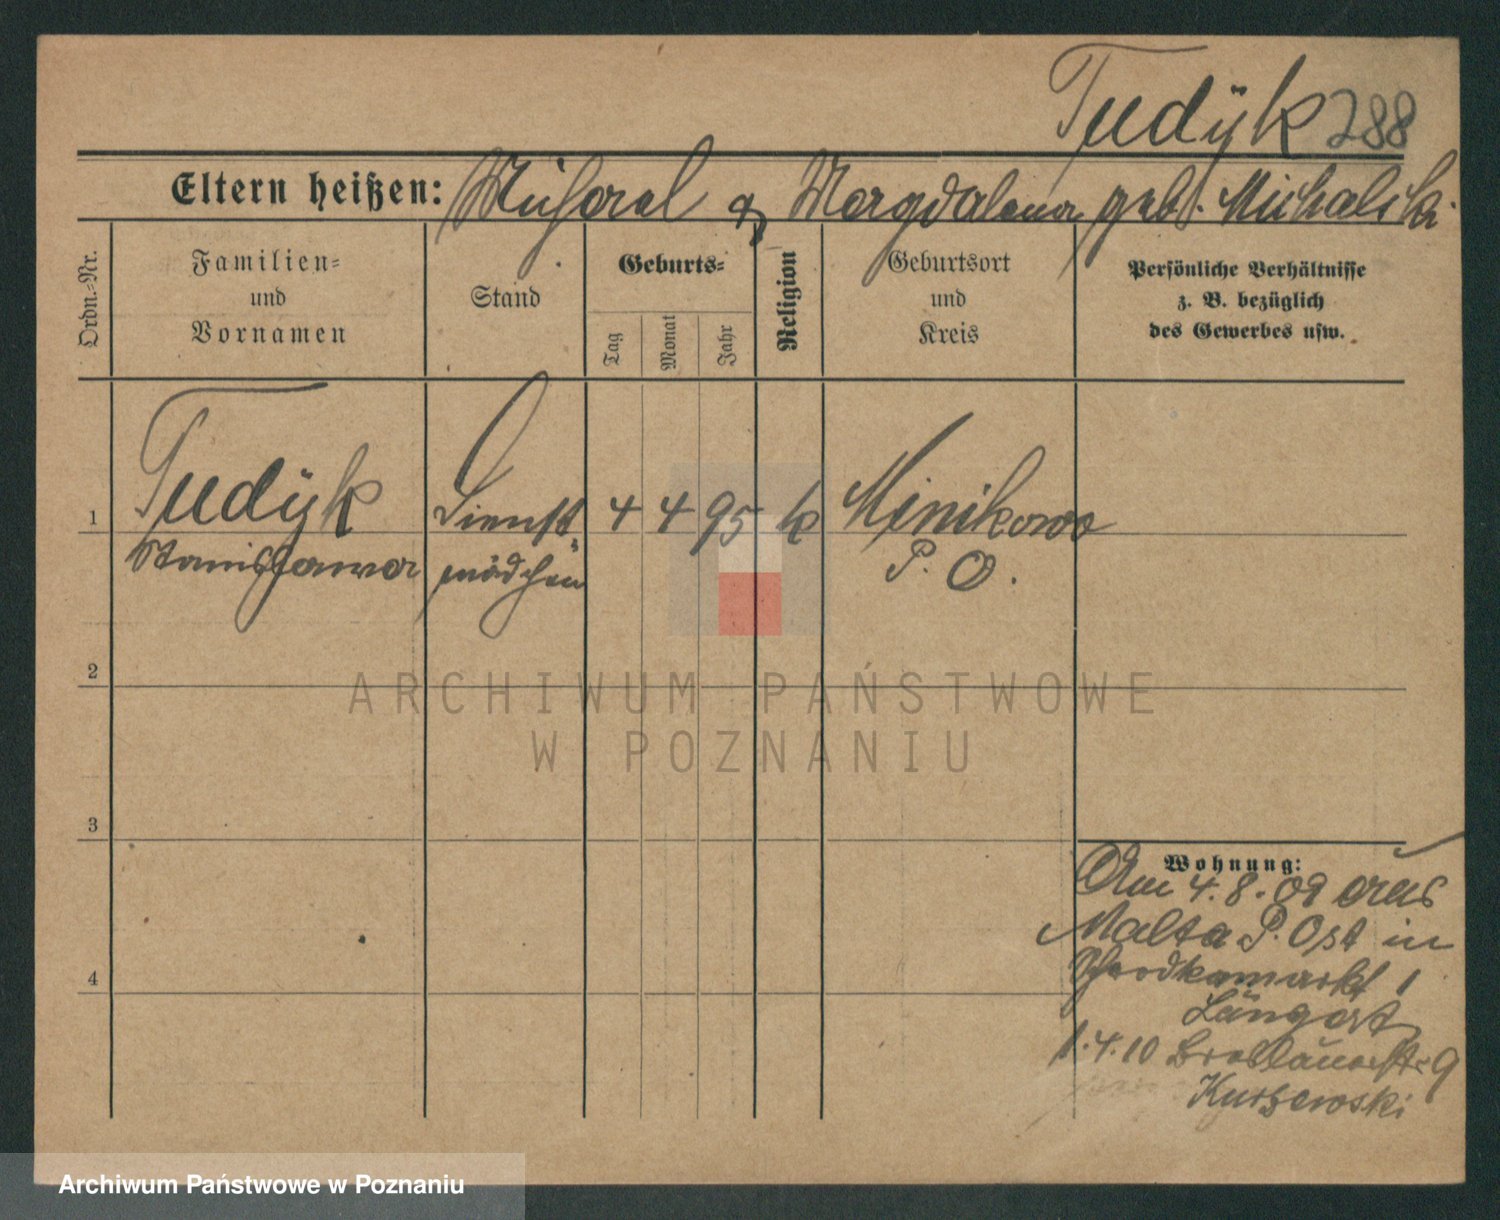 Tudÿk 288
Eltern heißen: Michael & Magdalena geb. Michalski
Ordn.-Nr.
Familien-
und
Vornamen
Stand
Geburts-
Tag
Monat
Jahr
Religion
Geburtsort
und
Kreis
Persönliche Verhältnisse
z. B. bezüglich
des Gewerbes usw.
1
Tudÿk
Stanislawa
Dienst
mädchen
4 4 95 k
Minikowo
P. O.
2
3
4
Wohnung:
Am 4.8.09 aus
Malta P. Ost in
1
1.4.10 Breslauerstr 9
Kurzewski
ARCHIWUM PAŃSTWOWE
W POZNANIU
Archiwum Państwowe w Poznaniu